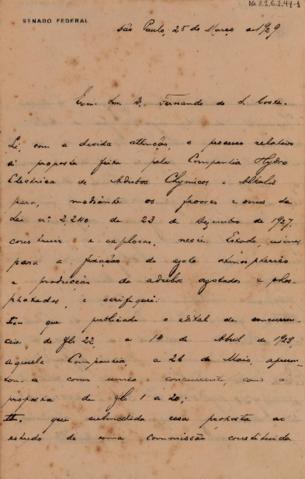 SENADO FEDERAL
São Paulo, 25 de Março de 1929
Exmo Snr D. Fernando de S. Costa.
Li, com a devida attenção, o processo relativo
á proposta feita pela Companhia Hydro
Electrica de Adubos Chymicos e Alkalis
para, mediante os favores e onus da
Lei nº 2.240, de 23 de Dezembro de 1927,
construir e explorar, neste Estado, usinas
para a fixação do azoto atmospherico
e producção de adubos azotados e phos-
phatados, e verifiquei:
que publicado o edital de concurren-
cia, de fls 22, a 19 de Abril de 1928,
aquella Companhia, a 26 de Maio, apresen-
tou-a como unico concurrente, com a
proposta de fls 1 a 20;
que submettida essa proposta ao
estudo de uma commissão constituida